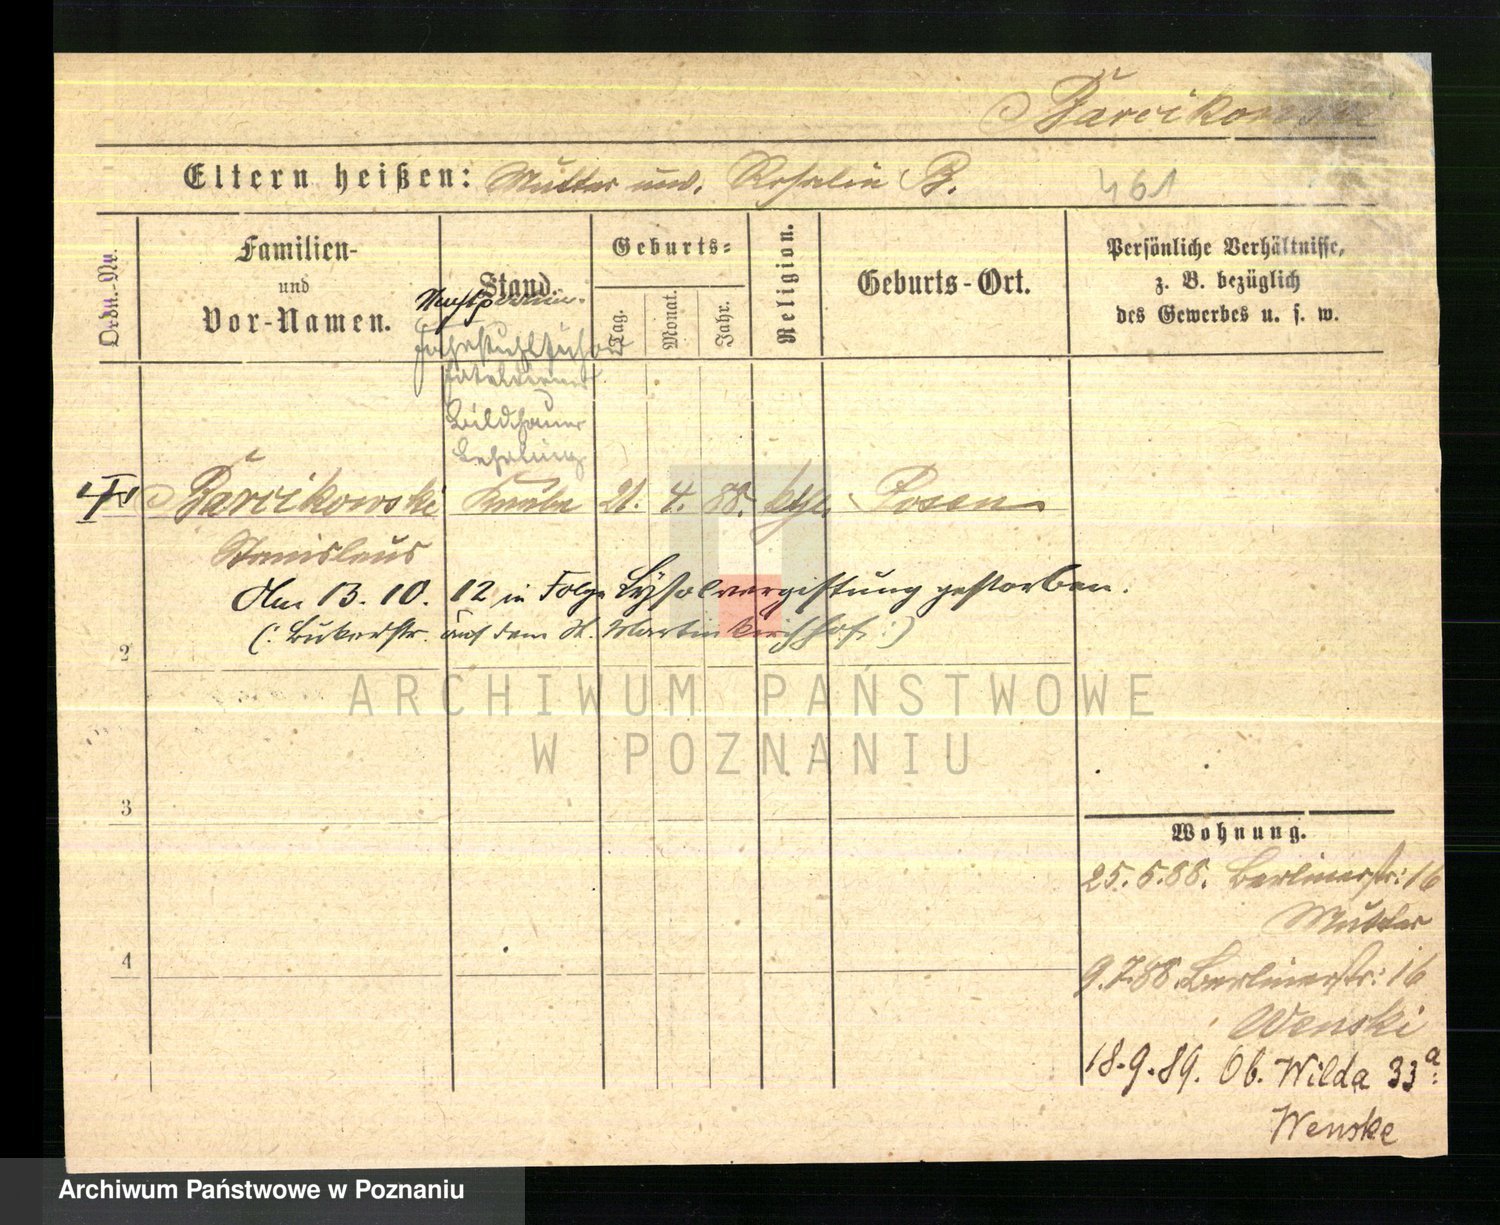 Barcikowski
Eltern heißen: Mutter unv. Rosalie B.
461
Ordn.-Nr.
Familien-
und
Vor-Namen.
Stand.
Geburts-
Tag.
Monat.
Jahr.
Religion.
Geburts-Ort.
Persönliche Verhältnisse,
z. B. bezüglich
des Gewerbes u. s. w.
Fahrstuhlführer
Bildhauer
Lehrling
Barcikowski Knabe 21. 4. 88. kth. Posen
Stanislaus
Am 13. 10. 12 in Folge Lysolvergiftung gestorben.
(: Bukerstr. auf dem St. Martinkirchhof :)
2
ARCHIWUM PAŃSTWOWE
W POZNANIU
3
Wohnung.
25. 5. 88. Berlinerstr: 16
Mutter
4
9. 7. 88. Berlinerstr: 16
Wenski
18. 9. 89. Ob. Wilda 33a:
Wenske
Archiwum Państwowe w Poznaniu